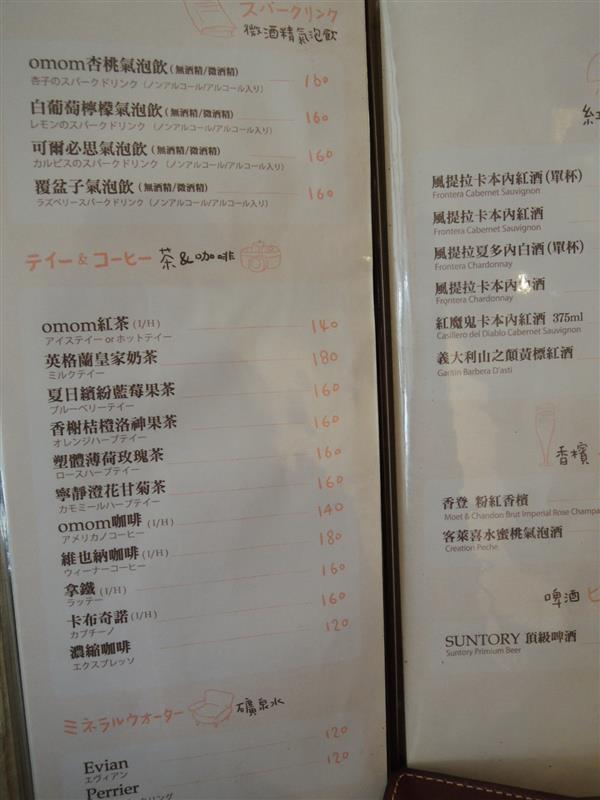 スパークリンク
微酒精氣泡飲
omom杏桃氣泡飲(無酒精/微酒精) 160
杏子のスパークドリンク (ノンアルコール/アルコール入り)
白葡萄檸檬氣泡飲(無酒精/微酒精) 160
レモンのスパークドリンク (ノンアルコール/アルコール入り)
可爾必思氣泡飲(無酒精/微酒精) 160
カルピスのスパークドリンク (ノンアルコール/アルコール入り)
覆盆子氣泡飲(無酒精/微酒精) 160
ラズベリースパークドリンク (ノンアルコール/アルコール入り)
テイー&コーヒー 茶&咖啡
omom紅茶(I/H) 140
アイステイー or ホットテイー
英格蘭皇家奶茶 180
ミルクテイー
夏日繽紛藍莓果茶 160
ブルーベリーテイー
香榭桔橙洛神果茶 160
オレンジハーブテイー
塑體薄荷玫瑰茶 160
ロースハーブテイー
寧靜澄花甘菊茶 160
カモミールハーブテイー
omom咖啡(I/H) 140
アメリカノコーヒー
維也納咖啡(I/H) 180
ウィーナーコーヒー
拿鐵(I/H) 160
ラッテー
卡布奇諾(I/H) 160
カプチーノ
濃縮咖啡 120
エクスプレッソ
ミネラルウオーター 礦泉水
Evian 120
エヴィアン
Perrier 120
紅
風提拉卡本內紅酒(單杯)
Frontera Cabernet Sauvignon
風提拉卡本內紅酒
Frontera Cabernet Sauvignon
風提拉夏多內白酒(單杯)
Frontera Chardonnay
風提拉夏多內白酒
Frontera Chardonnay
紅魔鬼卡本內紅酒 375ml
Casillero del Diablo Cabernet Sauvignon
義大利山之顛黃標紅酒
Garitin Barbera D'asti
香檳
香登 粉紅香檳
Moet & Chandon Brut Imperial Rose Champa
客萊喜水蜜桃氣泡酒
Creation Peche
啤酒 ビ
SUNTORY 頂級啤酒
Suntory Primium Beer